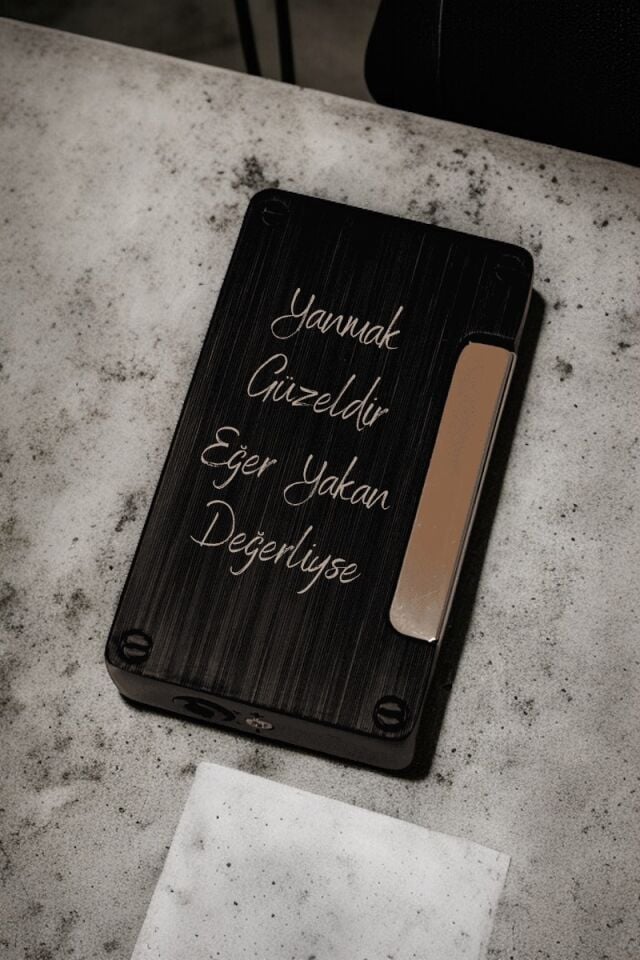 Yanmak
Güzeldir
Eğer Yakan
Değerliyse